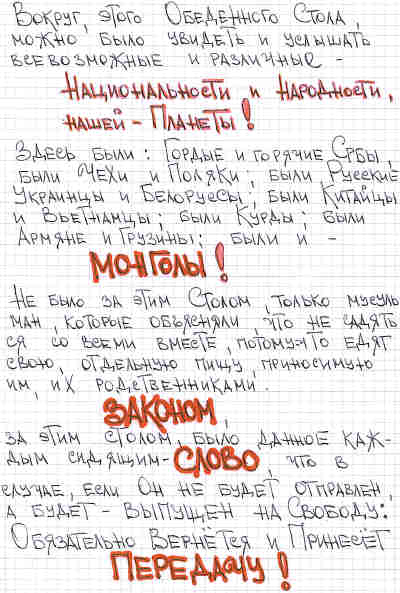 Вокруг, этого Обеденного Стола,
можно было увидеть и услышать
всевозможные и различные -
Национальности и народности,
нашей - Планеты!
Здесь были: Гордые и горячие Србы,
были Чехи и Поляки; были Русские
Украинцы и Белорусы; были Китайцы
и Вьетнамцы; были Курды; были
Армяне и Грузины; были и -
Монголы!
Не было за этим Столом, только мусуль
ман, которые объясняли, что не садять
ся со всеми вместе, потому-что едят
свою, отдельную пищу, приносимую
им, их родственниками.
Законом,
за этим столом, было данное каж-
дым сидящим - Слово, что в
случае, если Он не будет отправлен,
а будет - выпущен на Свободу:
Обязательно Вернётся и Принесёт
Передачу!